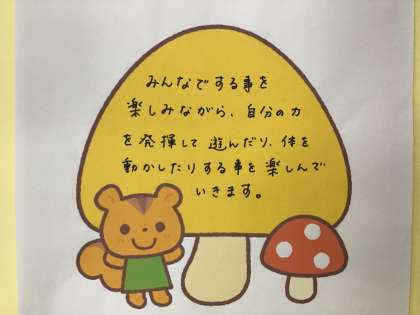 みんなでする事を
楽しみながら、自分の力
を発揮して遊んだり、体を
動かしたりする事を楽しんで
いきます。